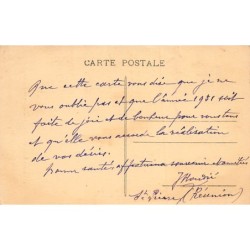 CARTE POSTALE
Que cette carte vous dise que je ne
vous oublie pas et que l'année 1931 soit
faite de joie et de bonheur pour vous tous
et qu'elle vous accorde la réalisation
de vos désirs.
Bonne santé, affectueux souvenir et amitiés
St Pierre (Réunion)